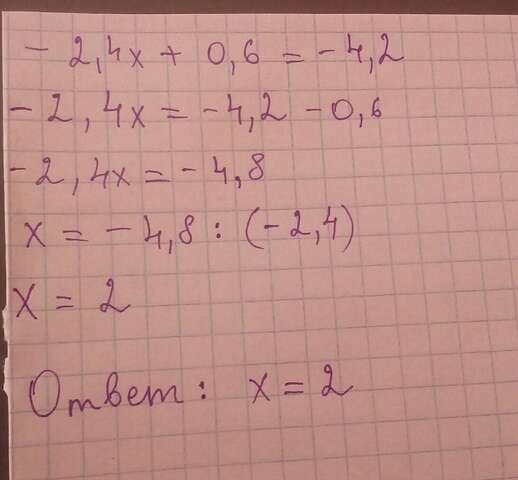 - 2,4x + 0,6 = - 4,2
- 2,4x = - 4,2 - 0,6
- 2,4x = - 4,8
x = - 4,8 : (- 2,4)
x = 2
Ответ: x = 2